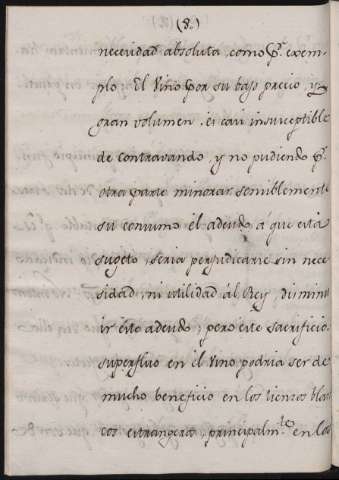 (8.)
necesidad absoluta, como p.r exem-
plo. El Vino por su bajo precio, y
gran volumen, es casi insuceptible
de contravando, y no pudiendo p.r
otra parte minorar sensiblemente
su consumo el adeudo á que está
sugeto, seria perjudicarse sin nece-
sidad, ni utilidad al Rey, diminu-
ir este adeudo; pero este sacrificio
superfluo en el Vino podria ser de
mucho beneficio en los lienzos blan-
cos estrangeros, principalm.te en los